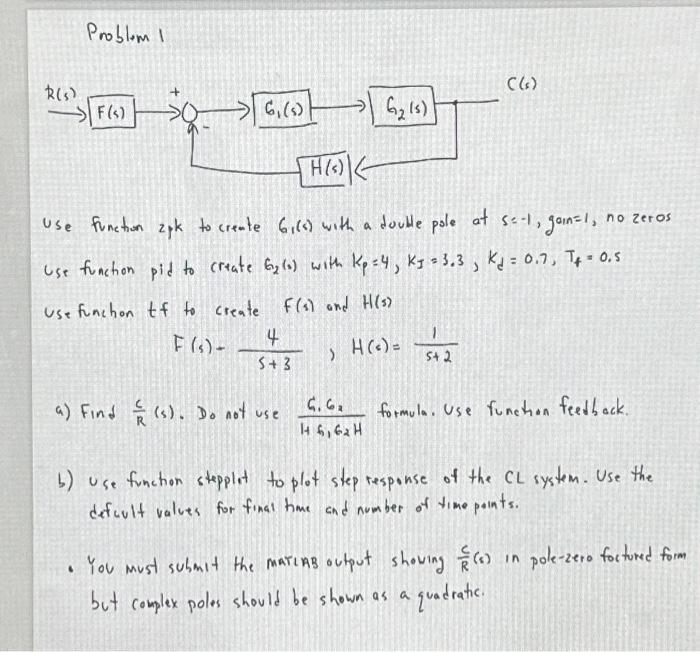 Problem 1
R(s)
F(s)
+
-
G₁(s)
G₂(s)
C(s)
H(s)
Use function zpk to create G₁(s) with a double pole at s=-1, gain=1, no zeros
Use function pid to create G₂(s) with Kp=4, KI=3.3, Kd=0.7, Tf=0.5
Use function tf to create F(s) and H(s)
F(s)= 4/(s+3), H(s)= 1/(s+2)
a) Find C/R (s). Do not use G₁G₂/(1+G₁G₂H) formula. Use function feedback.
b) Use function stepplot to plot step response of the CL system. Use the
default values for final time and number of time points.
• You must submit the MATLAB output showing C/R (s) in pole-zero factored form
but complex poles should be shown as a quadratic.